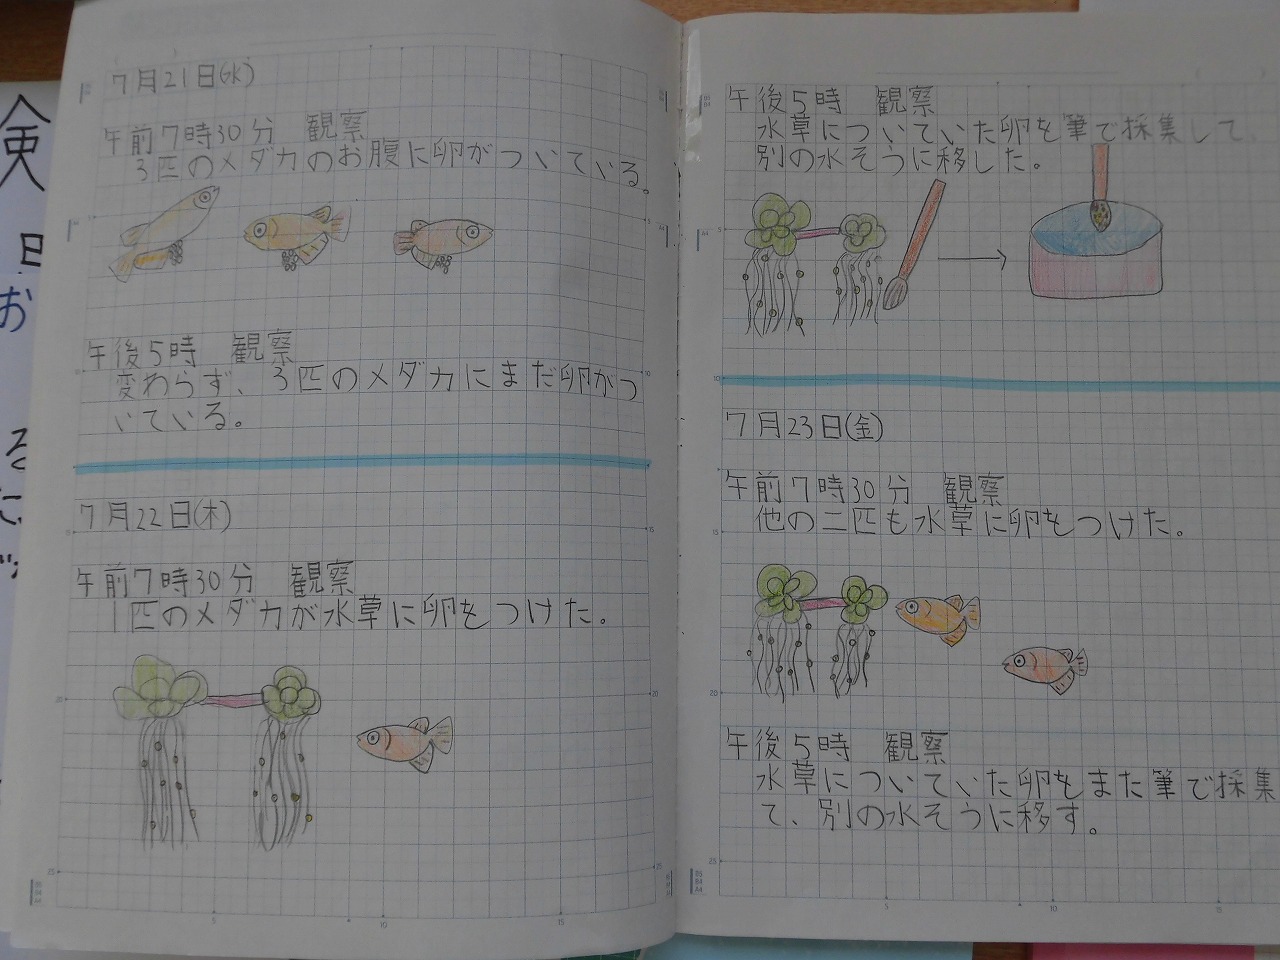 7月21日(水)
午前7時30分 観察
3匹のメダカのお腹に卵がついている。
午後5時 観察
変わらず、3匹のメダカにまだ卵がつ
いている。
7月22日(木)
午前7時30分 観察
1匹のメダカが水草に卵をつけた。
午後5時 観察
水草についていた卵を筆で採集して、
別の水そうに移した。
7月23日(金)
午前7時30分 観察
他の二匹も水草に卵をつけた。
午後5時 観察
水草についていた卵をまた筆で採集
て、別の水そうに移す。